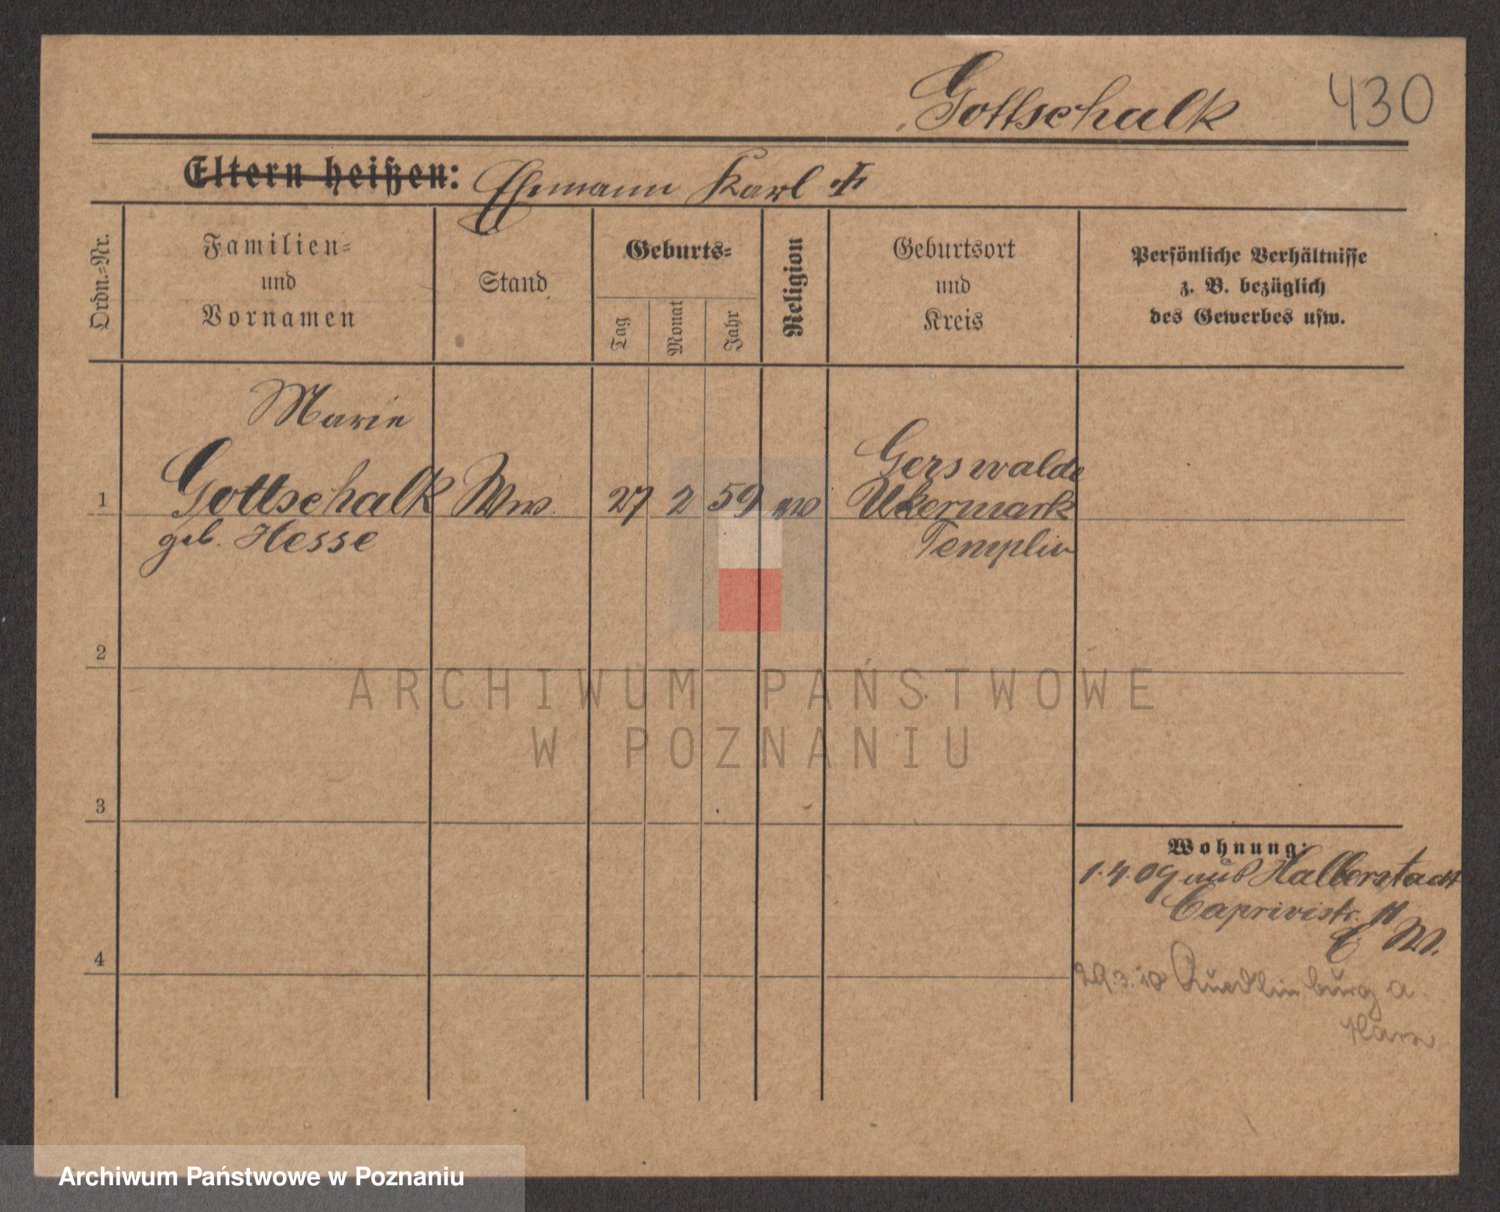 Gottschalk 430
Eltern heißen: Ehemann Karl
Ordn.-Nr.
Familien-
und
Vornamen
Stand
Geburts-
Tag
Monat
Jahr
Religion
Geburtsort
und
Kreis
Persönliche Verhältnisse
z. B. bezüglich
des Gewerbes usw.
Marie
1 Gottschalk Ww. 27 2 59
geb. Hesse
Gerswalde
Ukermark
Templin
2
ARCHIWUM PAŃSTWOWE
W POZNANIU
3
Wohnung:
1.4.09 aus Halberstadt
Caprivistr.
4
29.3.10 Quedlinburg a.
Harz
Archiwum Państwowe w Poznaniu